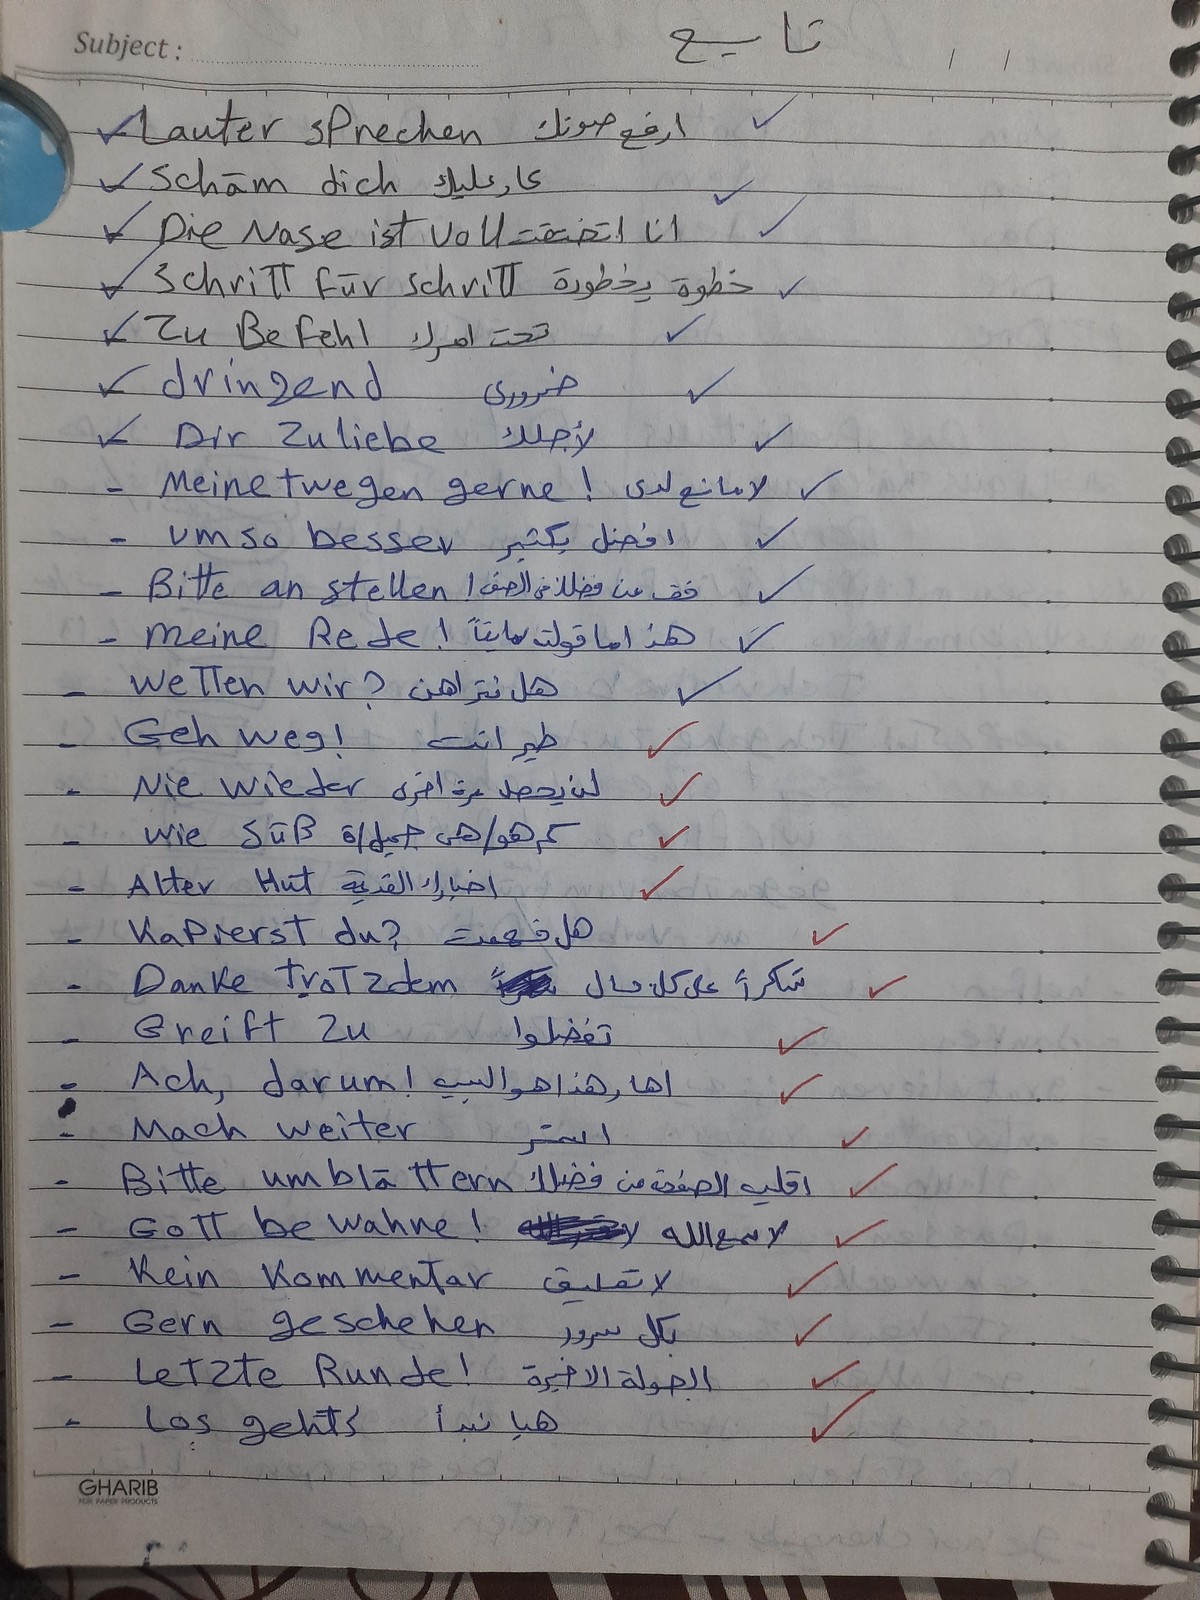 Subject :
تابع
/ /
Lauter sprechen ارفع صوتك
Schäm dich عار عليك
Die Nase ist voll انا اتخنقت
Schritt für schritt خطوة بخطوة
Zu Befehl تحت امرك
dringend ضرورى
Dir zuliebe لأجلك
- Meinetwegen gerne! لا مانع لدى
- umso besser افضل بكثير
- Bitte an stellen! قف من فضلك فى الصف
- meine Rede! هذا ما قولته سابقاً
- Wetten wir? هل نتراهن
- Geh weg! طير انت
- Nie wieder لن يحصل مرة اخرى
- wie süß كم هو/هى جميل/ة
- Alter Hut اخبارك القديمة
- Kapierst du? هل فهمت
- Danke trotzdem شكراً على كل حال
- Greift zu تفضلوا
- Ach, darum! اها, هذا هو السبب
- Mach weiter استمر
- Bitte umblättern اقلب الصفحة من فضلك
- Gott be wahne! لا سمح الله
- Kein Kommentar لا تعليق
- Gern geschehen بكل سرور
- Letzte Runde! الجولة الاخيرة
- Los geht's هيا نبدأ
GHARIB
FOR PAPER PRODUCTS